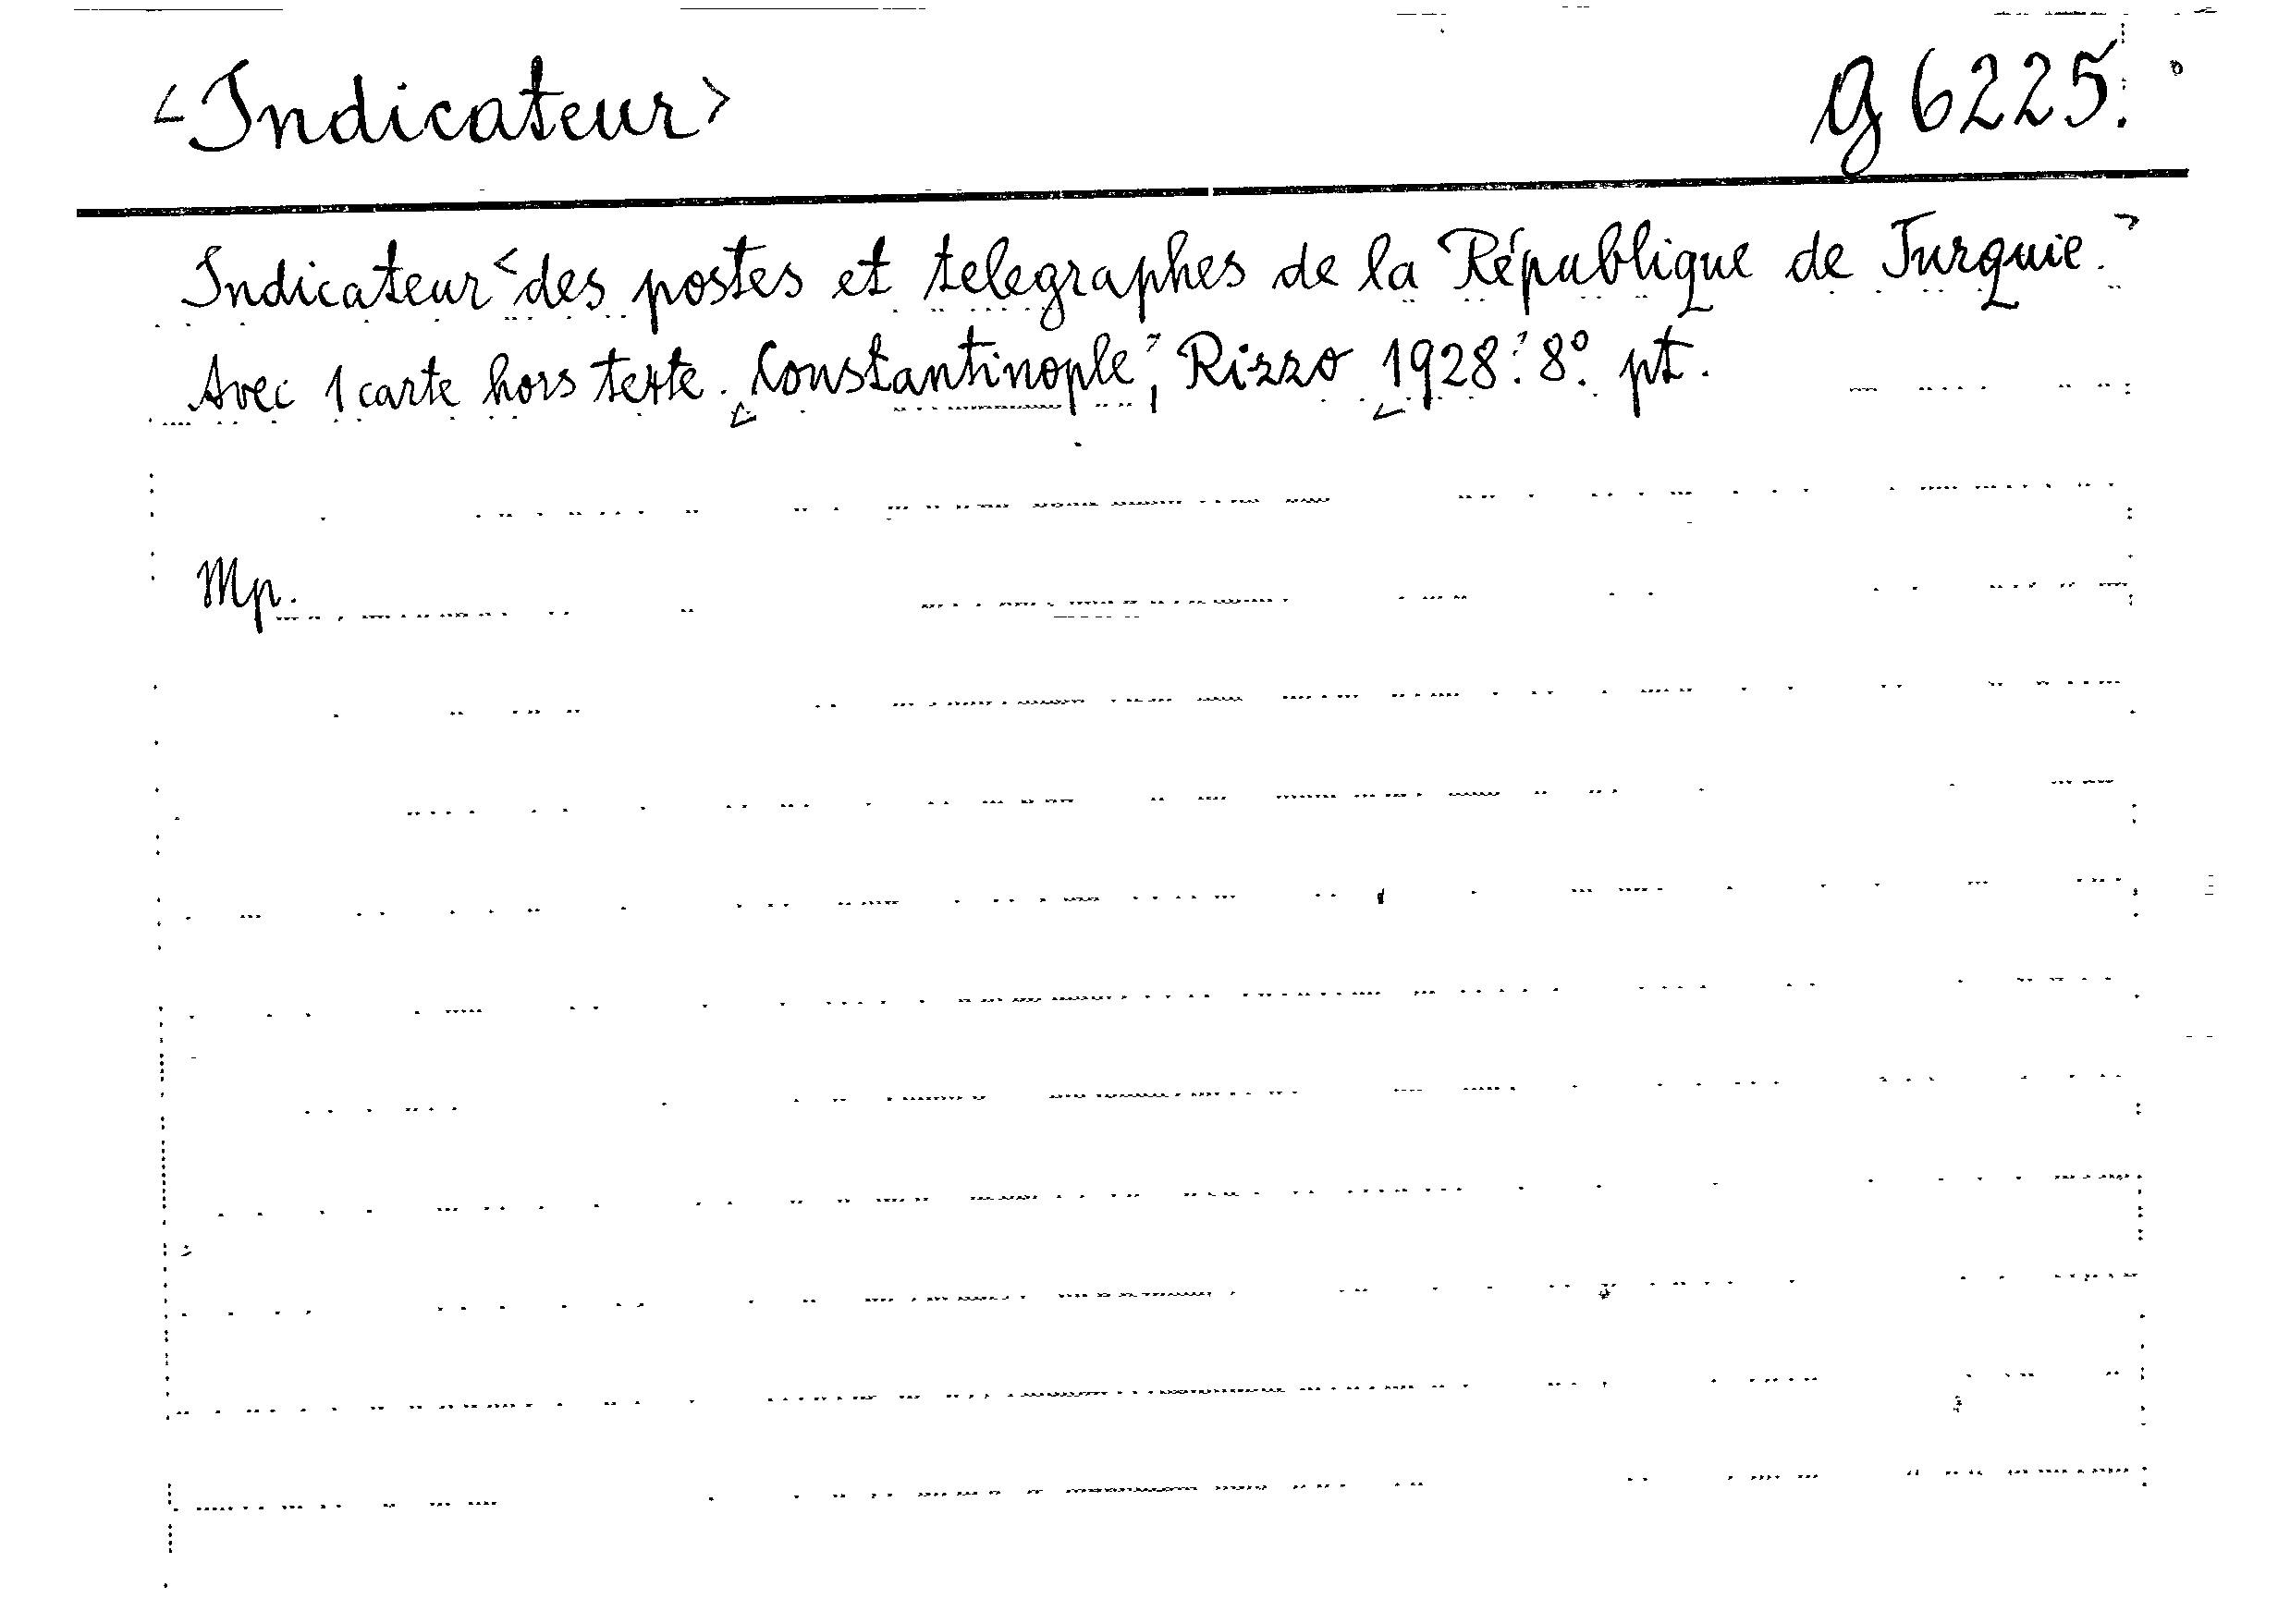 <Indicateur> G 6225.
Indicateur <des postes et telegraphes de la République de Turquie.>
Avec 1 carte hors texte. <Constantinople>, Rizzo <1928>. 8°. pt.
Mp.